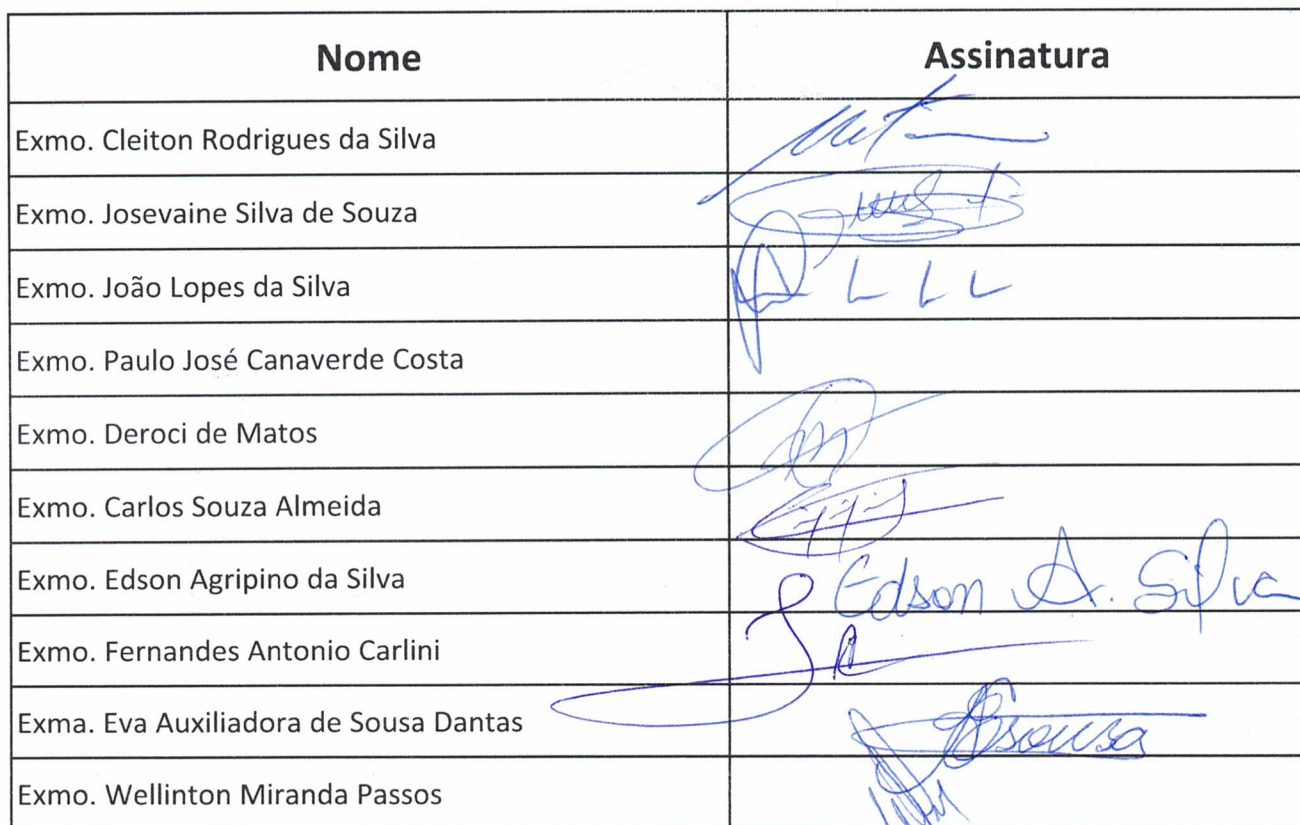 Nome Assinatura
Exmo. Cleiton Rodrigues da Silva
Exmo. Josevaine Silva de Souza
Exmo. João Lopes da Silva L L L
Exmo. Paulo José Canaverde Costa
Exmo. Deroci de Matos
Exmo. Carlos Souza Almeida
Exmo. Edson Agripino da Silva Edson A. Silva
Exmo. Fernandes Antonio Carlini
Exma. Eva Auxiliadora de Sousa Dantas
Exmo. Wellinton Miranda Passos